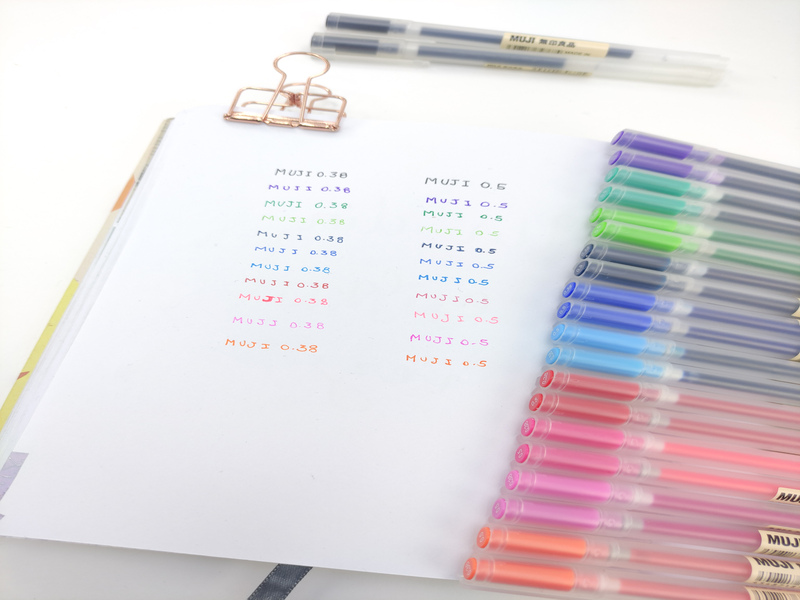 MUJI 無印良品
MUJI 0.38
MUJI 0.38
MUJI 0.38
MUJI 0.38
MUJI 0.38
MUJI 0.38
MUJI 0.38
MUJI 0.38
MUJI 0.38
MUJI 0.38
MUJI 0.38
MUJI 0.5
MUJI 0.5
MUJI 0.5
MUJI 0.5
MUJI 0.5
MUJI 0.5
MUJI 0.5
MUJI 0.5
MUJI 0.5
MUJI 0.5
MUJI 0.5
MUJI
MUJI